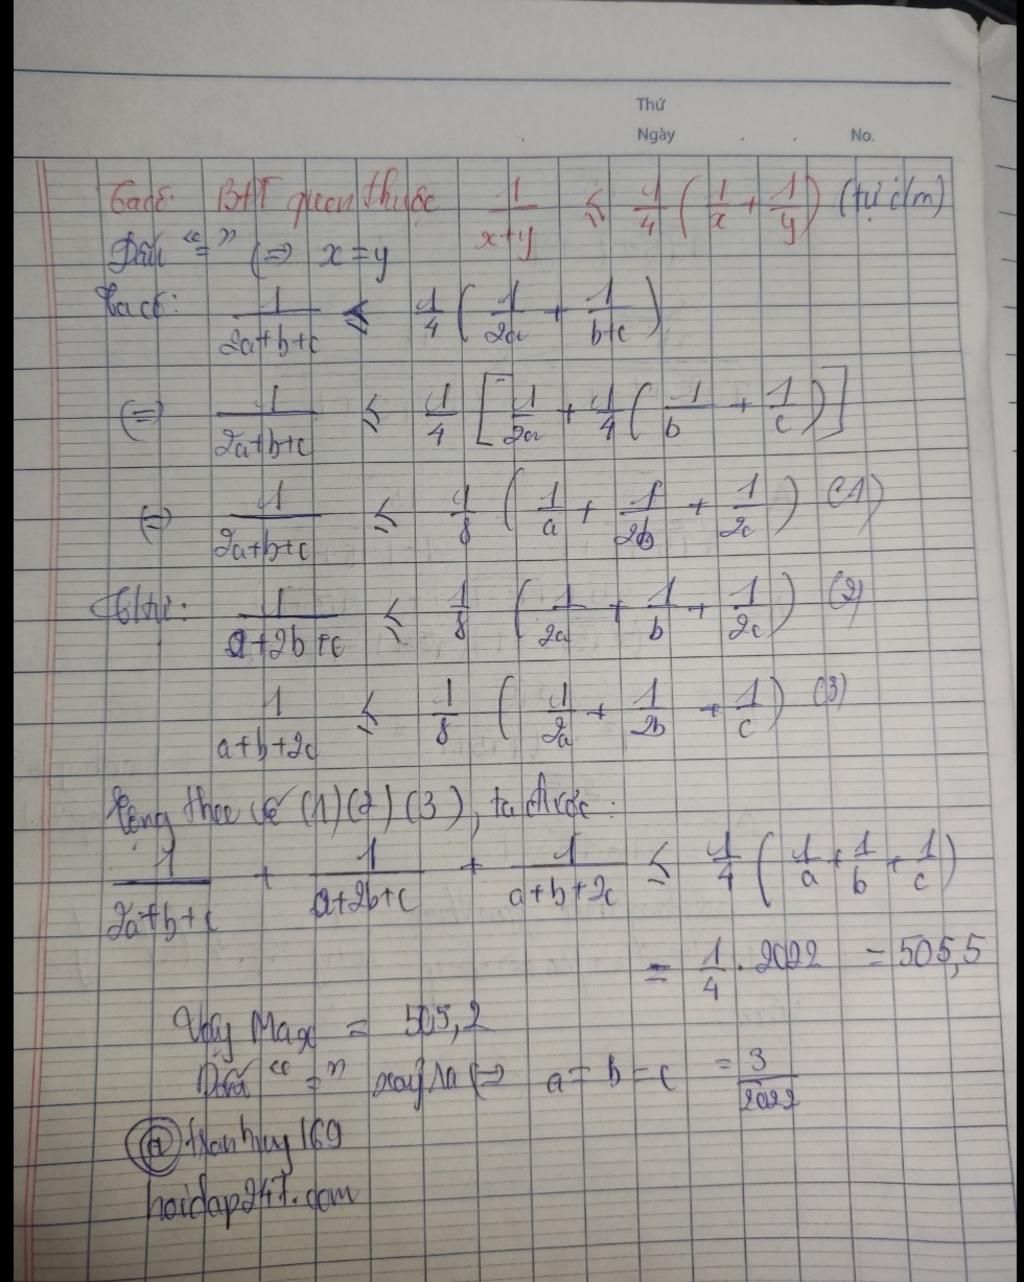 Thứ
Ngày . . No.
Ta có: BĐT quen thuộc 1/(x+y) ≤ 1/4 (1/x + 1/y) (tự c/m)
Dấu "=" (=) x = y
Ta có: 1/(2a+b+c) ≤ 1/4 (1/2a + 1/(b+c))
(=) 1/(2a+b+c) ≤ 1/4 [1/2a + 1/4 (1/b + 1/c)]
(=) 1/(2a+b+c) ≤ 1/8 (1/a + 1/2b + 1/2c) (1)
1/(a+2b+c) ≤ 1/8 (1/2a + 1/b + 1/2c) (2)
1/(a+b+2c) ≤ 1/8 (1/2a + 1/2b + 1/c) (3)
Cộng theo vế (1)(2)(3), ta được:
1/(2a+b+c) + 1/(a+2b+c) + 1/(a+b+2c) ≤ 1/4 (1/a + 1/b + 1/c)
= 1/4 . 2022 = 505,5
Vậy Max = 505,2
Dấu "=" xảy ra (=) a = b = c = 3/2022
@tranhuy169
hoidap247.com